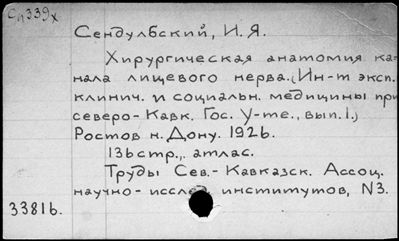 Сп339х
Сендулбский, И. Я.
Хирургическая анатомия ка-
нала лищевого нерва. (Ин-т эксп.
клинич. и социальн. медицины при
северо-Кавк. Гос. У-те., вып. 1.)
Ростов н. Дону. 1926.
136 стр., атлас.
Труды Сев.-Кавказск. Ассоц.
научно-исслед институтов, N3.
33816.